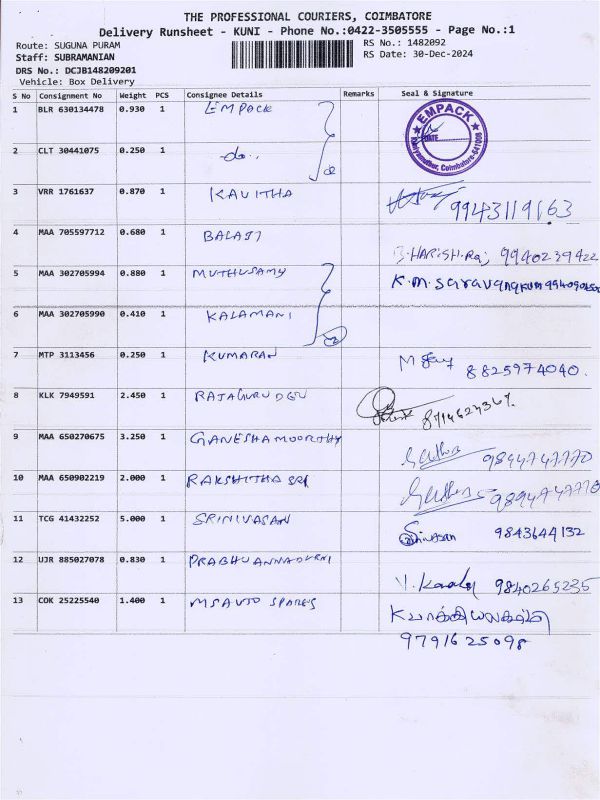 THE PROFESSIONAL COURIERS, COIMBATORE
Delivery Runsheet - KUNI - Phone No.:0422-3505555 - Page No.:1
Route: SUGUNA PURAM
RS No.: 1482092
Staff: SUBRAMANIAN
RS Date: 30-Dec-2024
DRS No.: DCJB148209201
Vehicle: Box Delivery
S No Consignment No Weight PCS Consignee Details Remarks Seal & Signature
1 BLR 630134478 0.930 1 EMPACK EMPACK DATE Coimbatore-641008
2 CLT 30441075 0.250 1 -do..
3 VRR 1761637 0.870 1 KAVITHA 9943119163
4 MAA 705597712 0.680 1 BALAJI B.HARISH.Raj 9940239422
5 MAA 302705994 0.880 1 MUTHUSAMY K.m.saravanakum
6 MAA 302705990 0.410 1 KALAMANI 2
7 MTP 3113456 0.250 1 KUMARAN 8825974040.
8 KLK 7949591 2.450 1 RAJAGURU DEV
9 MAA 650270675 3.250 1 GANESHAMOORTHY 9894747770
10 MAA 650902219 2.000 1 RAKSHITHA SRI 9894747770
11 TCG 41432252 5.000 1 SRINIVASAN Srinivasan 9843644132
12 UJR 885027078 0.830 1 PRABHU ANNADURAI 9840265235
13 COK 25225540 1.400 1 MS AUTO SPARES
9791625098